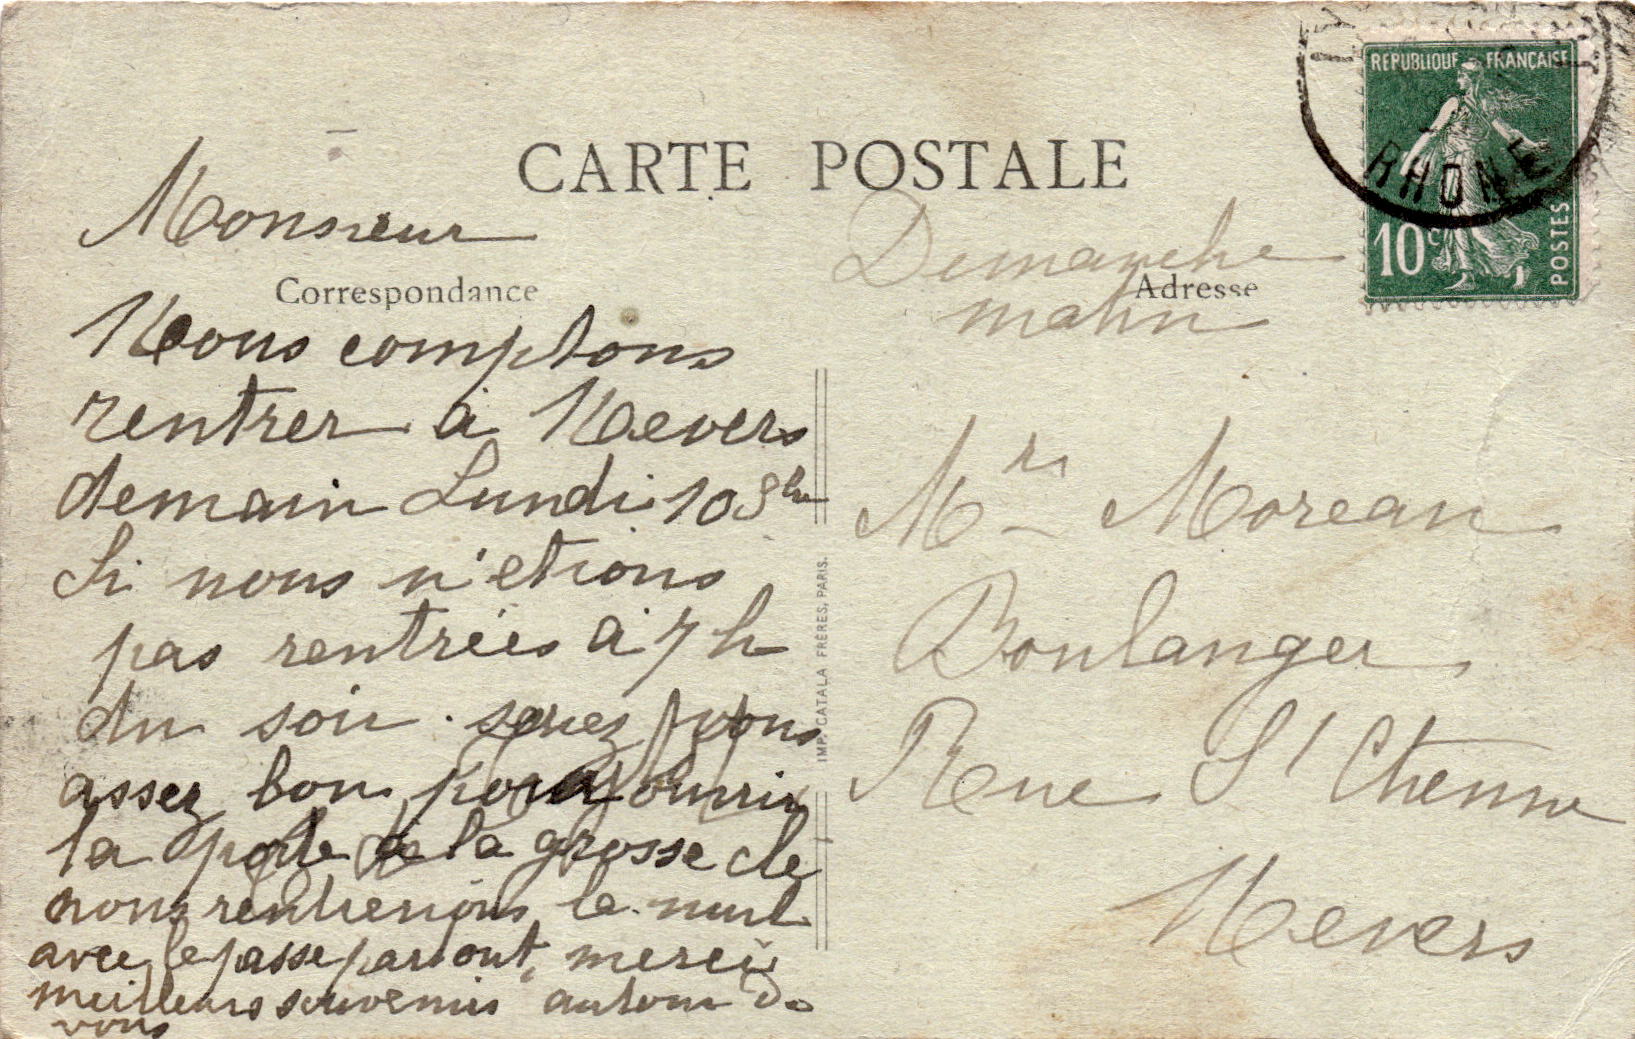 CARTE POSTALE
RÉPUBLIQUE FRANÇAISE
10c
POSTES
RHONE
Correspondance
Adresse
Monsieur
Nous comptons
rentrer à Nevers
demain Lundi 10
Si nous n'etions
pas rentrées à 7 h
du soir. serez vous
assez bon pour ouvrir
la porte à la grosse cle
nous rentrerions la nuit
avec le passe partout, merci
meilleurs souvenirs autour de
vous
IMP. CATALA FRÈRES, PARIS.
Demanche
matin
Mr Moreau
Boulanger
Rue St Etienne
Nevers